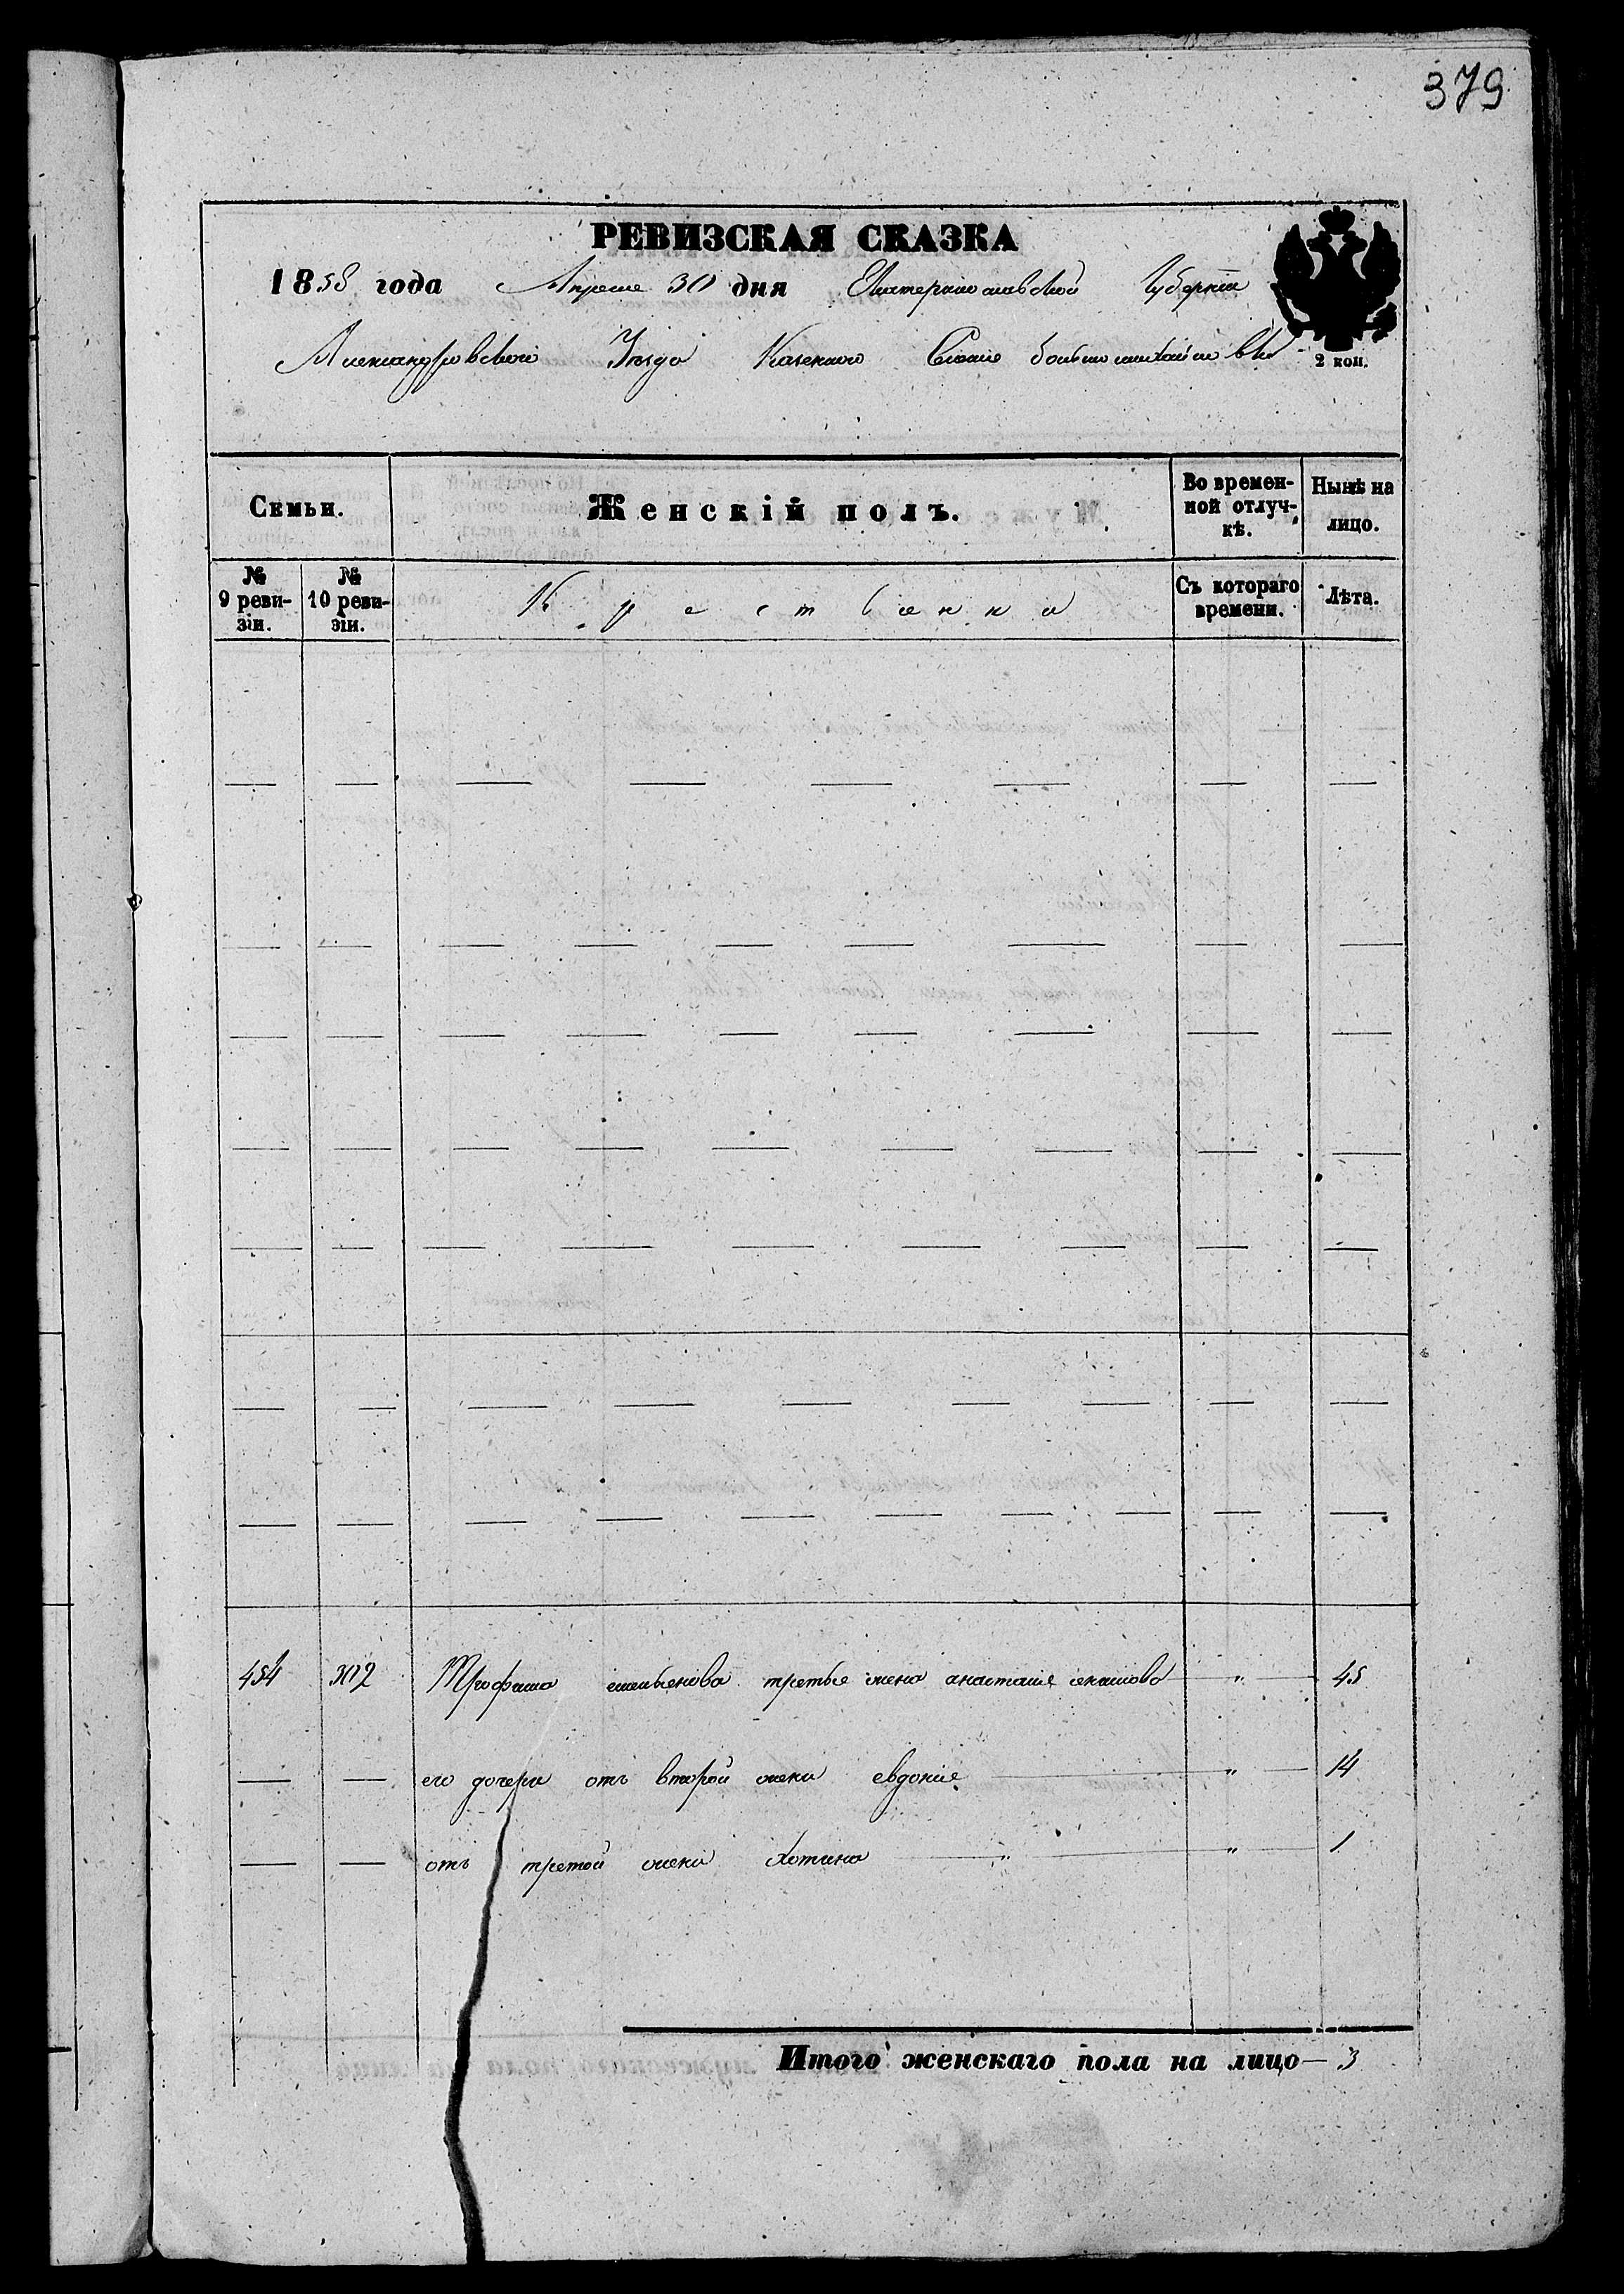 379
РЕВИЗСКАЯ СКАЗКА
1858 года Апреля 30 дня Екатеринославской Губернии
Александровского Уезда Казенного Селения большомихайловки
2 коп.
Семьи. Женскій полъ. Во временной отлучкѣ. Нынѣ на лицо.
№ 9 ревизіи. № 10 ревизіи. Крестьяне Съ котораго времени. Лѣта.
454 302 Трофима третье жена анастасие " 45
— — его дочери отъ второй жени евдокие " 14
— — отъ третой жени " 1
Итого женскаго пола на лицо — 3